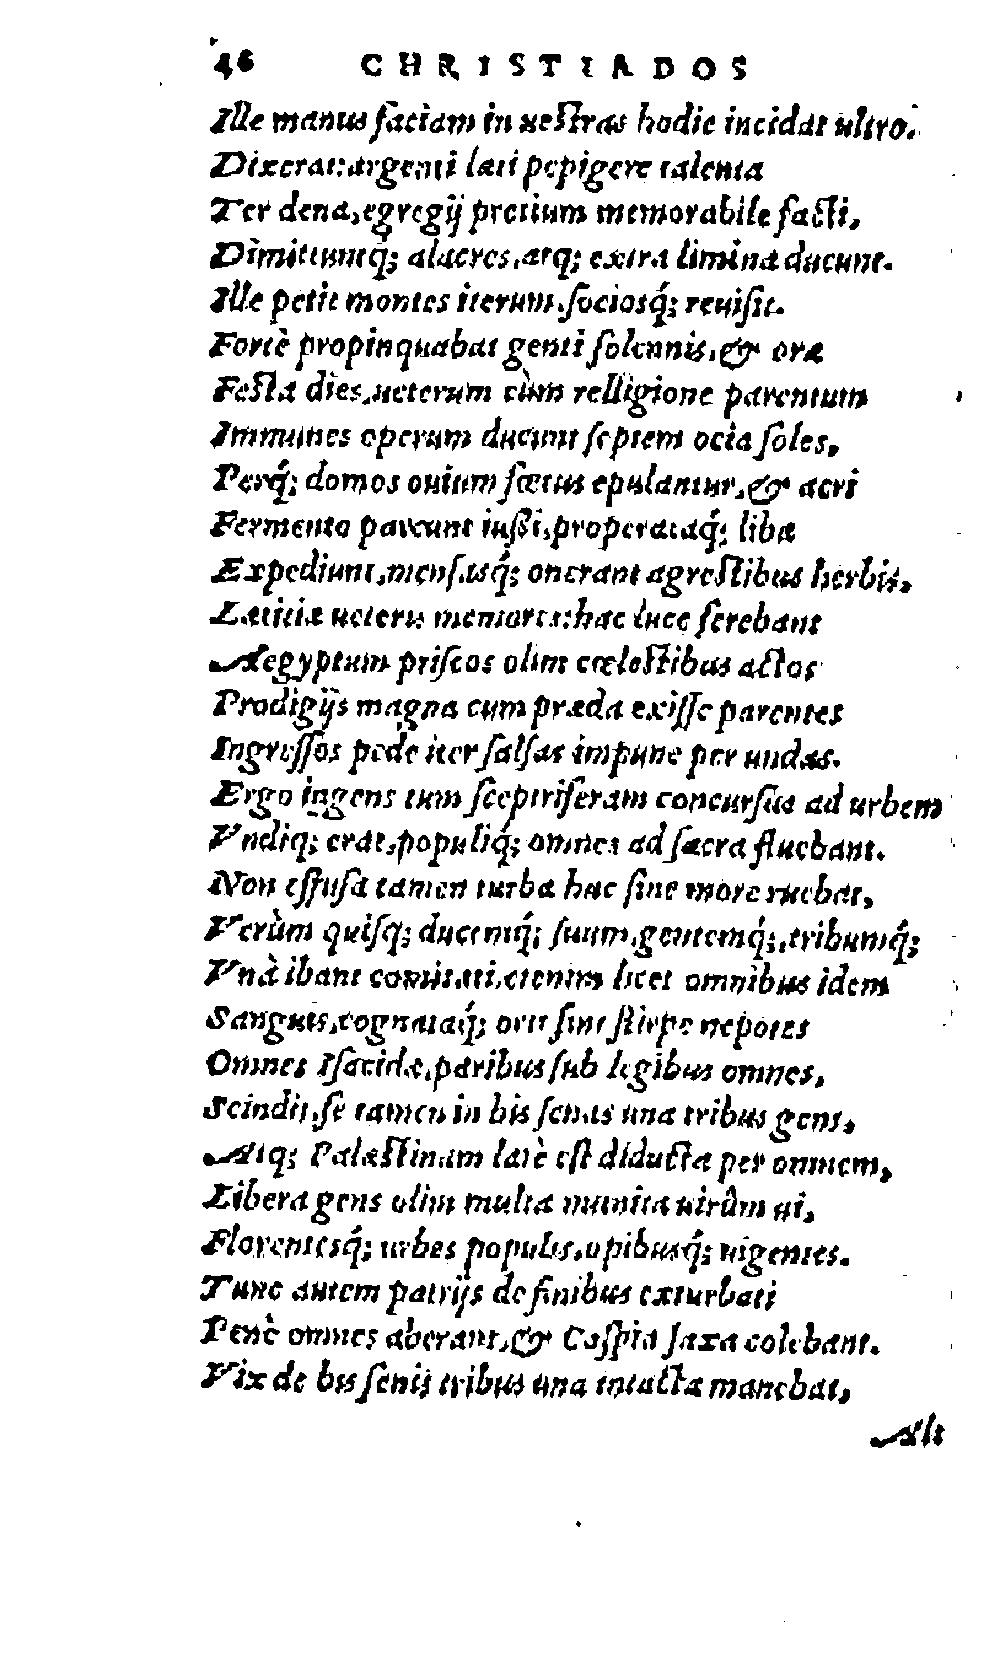 46 CHRISTIADOS
Ille manus faciam in uestras hodie incidat ultro.
Dixerat: argenti læti pepigere talenta
Ter dena, egregij pretium memorabile facti,
Dimittuntq́; alacres, atq; extra limina ducunt.
Ille petit montes iterum, sociosq́; reuisit.
Fortè propinquabat genti solennis, & oræ
Festa dies, ueterum cùm relligione parentum
Immunes operum ducunt septem ocia soles,
Perq́; domos ouium fœtus epulantur, & acri
Fermento parcunt iussi, properataq́; liba
Expediunt, mensasq́; onerant agrestibus herbis,
Lætitiæ ueteris memores: hac luce ferebant
Aegyptum priscos olim cœlestibus actos
Prodigijs magna cum præda exisse parentes
Ingressos pede iter salsas impune per undas.
Ergo ingens tum sceptriferam concursus ad urbem
Vndiq; erat, populiq́; omnes ad sacra fluebant.
Non effusa tamen turba huc sine more ruebat,
Verùm quisq; ducemq́; suum, gentemq́;, tribumq́;
Vnà ibant comitati, etenim licet omnibus idem
Sanguis, cognataq́; orti sint stirpe nepotes
Omnes Isacidæ, paribus sub legibus omnes,
Scindit, se tamen in bis senas una tribus gens,
Atq; Palæstinam latè est diducta per omnem,
Libera gens olim multa munita uirûm ui,
Florentesq́; urbes populis, opibusq́; uigentes.
Tunc autem patrijs de finibus exturbati
Penè omnes aberant, & Caspia saxa colebant.
Vix de bis senis tribus una intacta manebat,
Ali